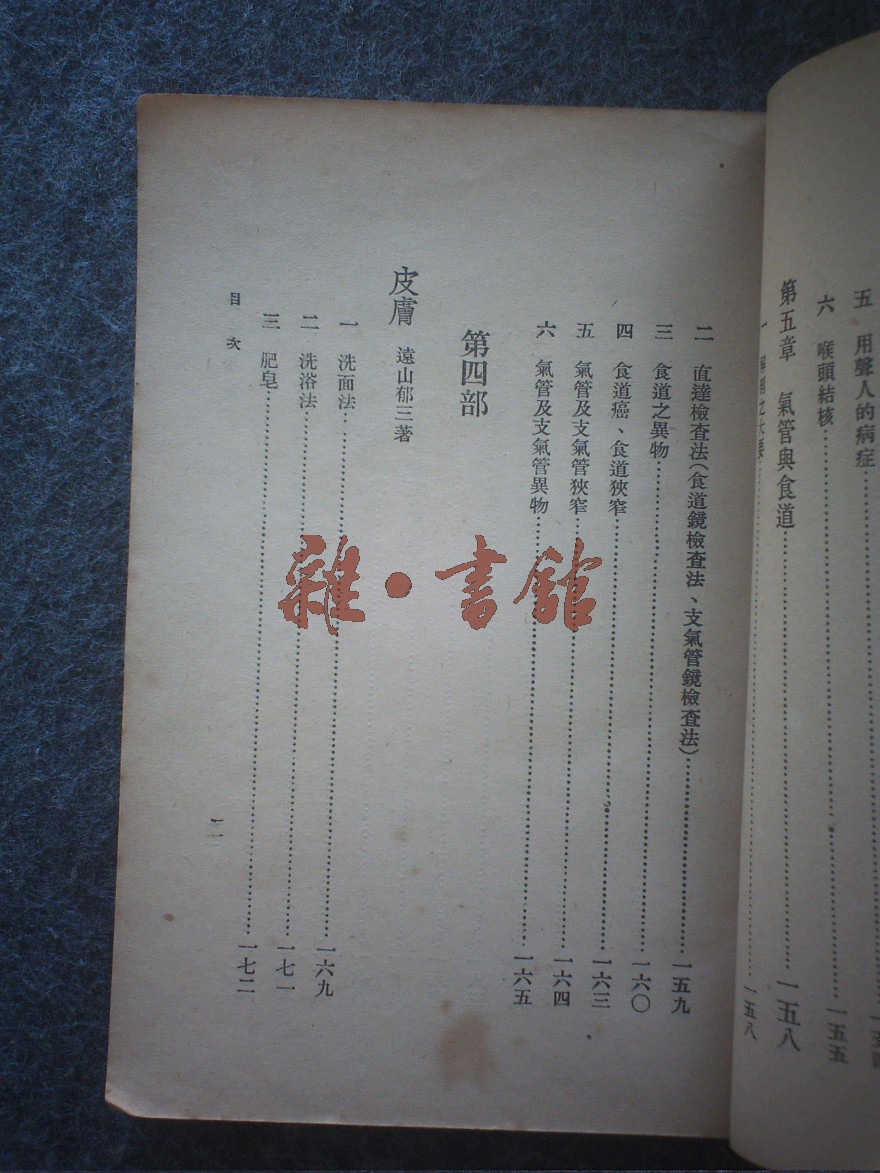 五　用聲人的病症
六　喉頭結核……一五五
第五章　氣管與食道……一五八
一　解剖之大要……一五八
二　直達檢查法(食道鏡檢查法、支氣管鏡檢查法)……一五九
三　食道之異物……一六〇
四　食道癌、食道狹窄……一六三
五　氣管及支氣管狹窄……一六四
六　氣管及支氣管異物……一六五
第四部
皮膚　遠山郁三著
一　洗面法……一六九
二　洗浴法……一七一
三　肥皂……一七二
目次
雜·書館